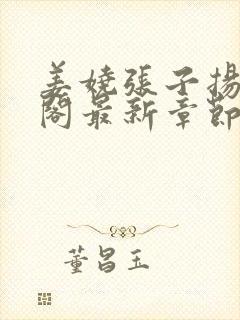 姜嬈張子揚
閣最新章節
董昌玉